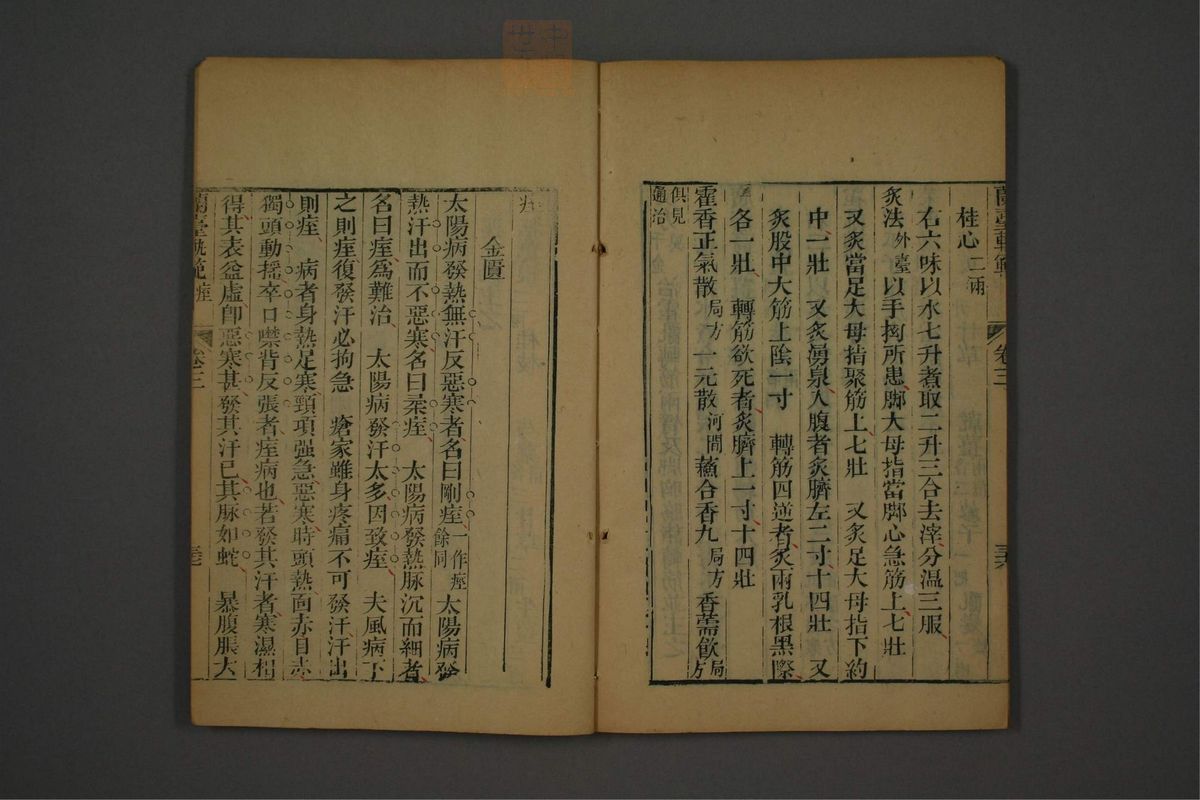 蘭臺軌範 卷三
桂心二兩
右六味以水七升煮取二升三合去滓分溫三服
炙法外臺以手拗所患脚大母指當脚心急筋上七壯
又炙當足大母指聚筋上七壯 又炙足大母指下約
中一壯 又炙湧泉入腹者炙臍左二寸十四壯 又
炙股中大筋上陰一寸 轉筋四逆者炙兩乳根黑際
各一壯 轉筋欲死者炙臍上一寸十四壯
霍香正氣散局方 一元散河間 蘇合香丸局方 香薷飲局方
俱見通治
痙
金匱
太陽病發熱無汗反惡寒者名曰剛痙一作痓餘同 太陽病發
熱汗出而不惡寒名曰柔痙 太陽病發熱脉沉而細者
名曰痙為難治 太陽病發汗太多因致痙 夫風病下
之則痙復發汗必拘急 瘡家雖身疼痛不可發汗汗出
則痙 病者身熱足寒頸項强急惡寒時頭熱面赤目赤
獨頭動搖卒口噤背反張者痙病也若發其汗者寒濕相
得其表益虛卽惡寒甚發其汗已其脉如蛇 暴腹脹大
蘭臺軌範 痙 卷三